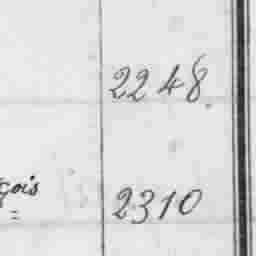 2248.
çois
2310